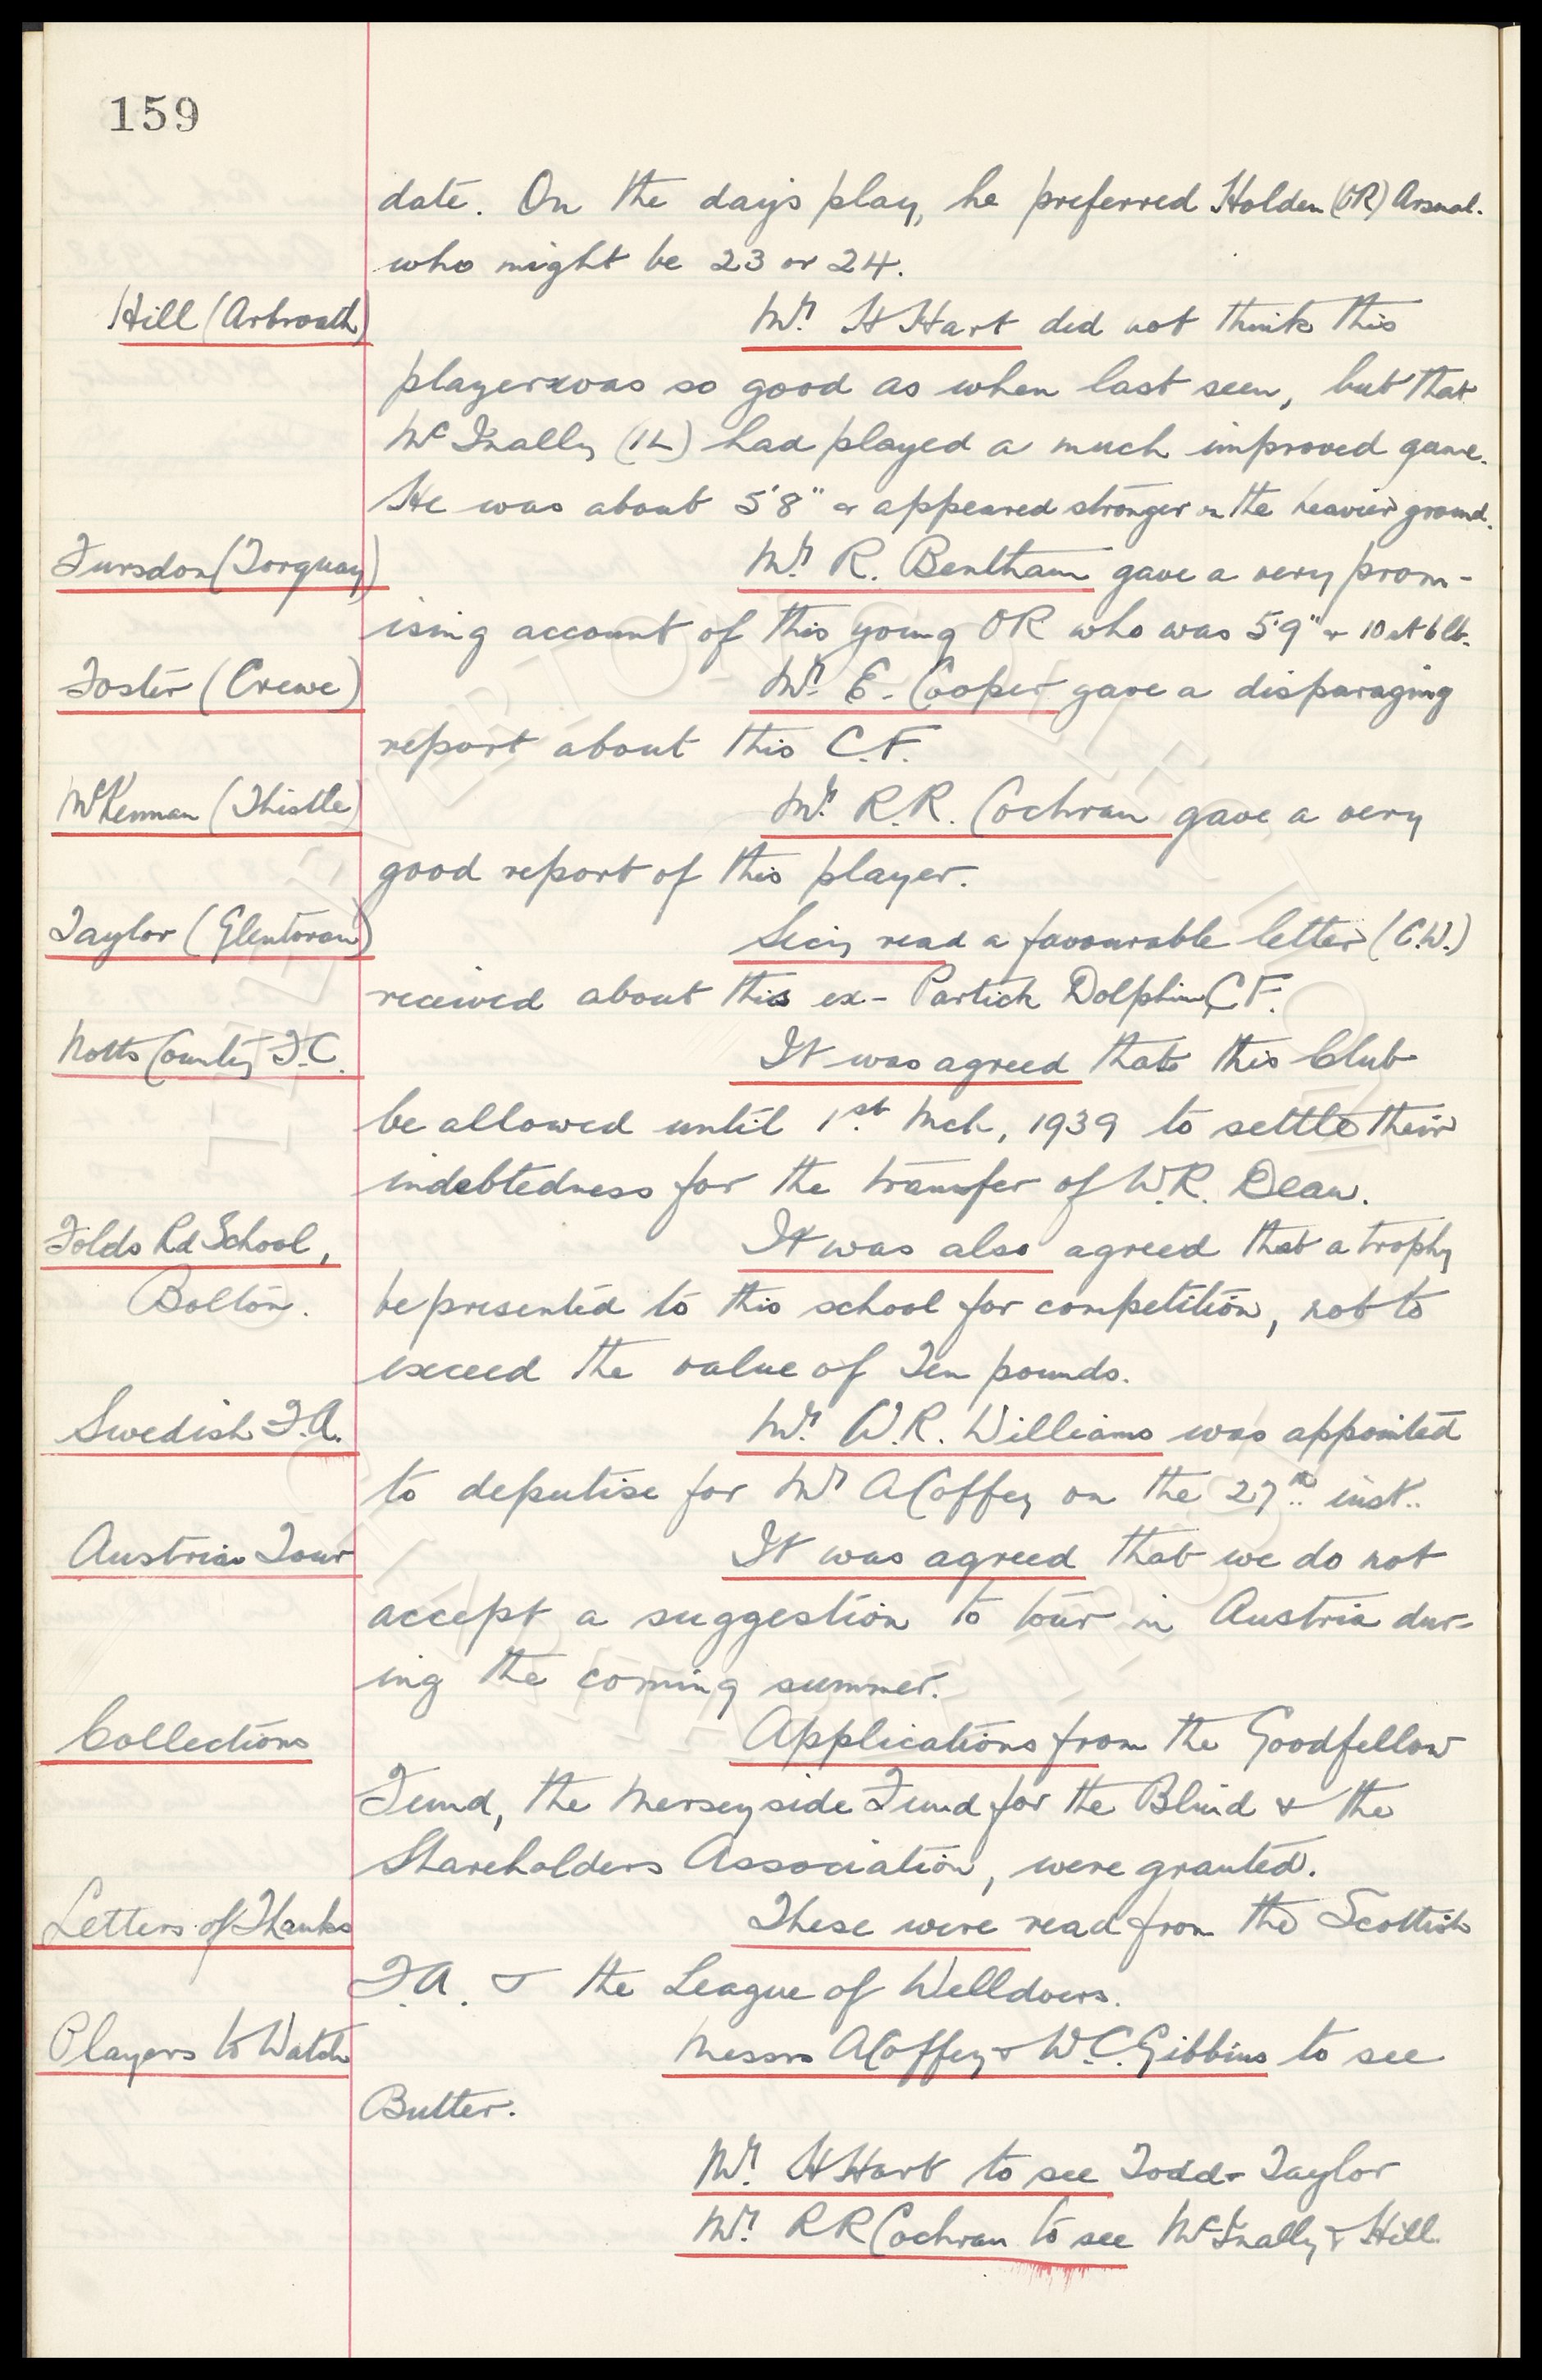 159
date. On the day's play, he preferred Holden (OR) Arsenal.
who might be 23 or 24.
Hill (Arbroath)
Mr. H Hart did not think this
player was so good as when last seen, but that
McInally (IL) had played a much improved game.
He was about 5'8" & appeared stronger on the heavier ground.
Fursdon (Torquay)
Mr. R. Bentham gave a very prom-
ising account of this young OR who was 5'9" & 10 st 6 lb.
Foster (Crewe)
Mr. E. Cooper gave a disparaging
report about this C.F.
McKennan (Thistle)
Mr. R.R. Cochran gave a very
good report of this player.
Taylor (Glentoran)
Secy read a favourable letter (C.W.)
received about this ex-Partick Dolphin C F.
Notts County F.C.
It was agreed that this Club
be allowed until 1st Mch, 1939 to settle their
indebtedness for the transfer of W.R. Dean.
Folds Rd School,
Bolton.
It was also agreed that a trophy
be presented to this school for competition, not to
exceed the value of Ten pounds.
Swedish F.A.
Mr. W.R. Williams was appointed
to deputise for Mr A Coffey on the 27th inst..
Austrian Tour
It was agreed that we do not
accept a suggestion to tour in Austria dur-
ing the coming summer.
Collections
Applications from the Goodfellow
Fund, the Merseyside Fund for the Blind & the
Shareholders Association, were granted.
Letters of Thanks
These were read from the Scottish
F.A. & the League of Welldoers.
Players to Watch
Messrs A Coffey & W.C. Gibbins to see
Butter.
Mr. H Hart to see Todd & Taylor
Mr. R R Cochran to see McInally & Hill.